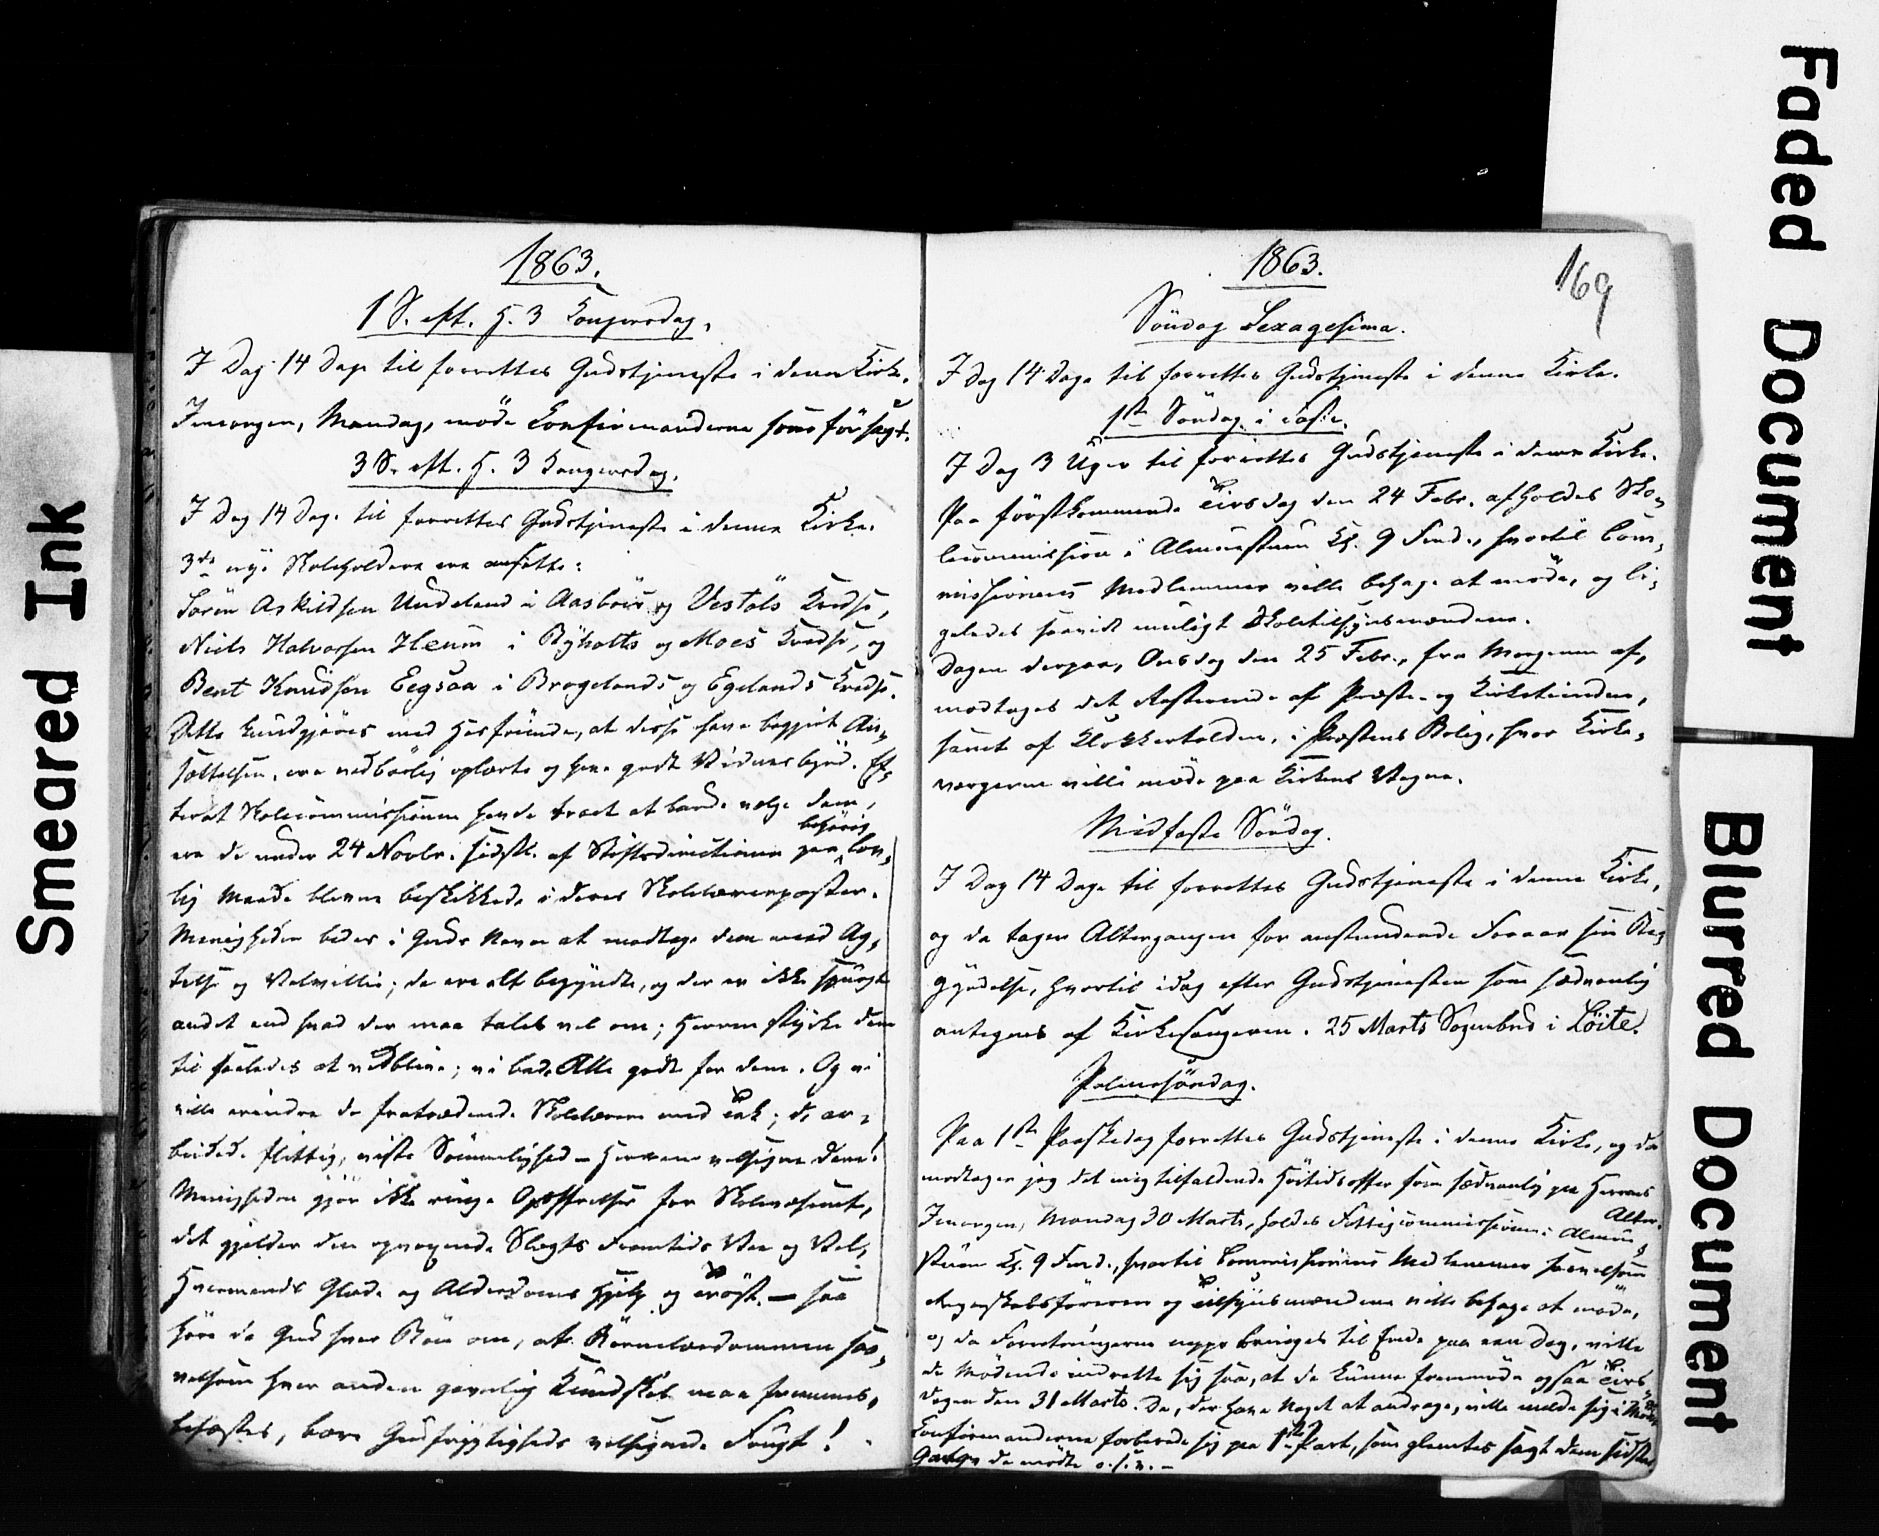 1863.
1 S. eft. H. 3 Kongersdag.
I Dag 14 Dage til forrettes Gudstjeneste i denne Kirke.
Imorgen, Mandag, møde Confirmanderne som før sagt.
3 S. eft. H. 3 Kongersdag.
I Dag 14 Dage til forrettes Gudstjeneste i denne Kirke.
3de nye Skoleholdere ere ansatte:
Sørен Askildsen Undeland i Aasbøes og Vestøls Kreds,
Niels Halvorsen Heum i Ryholts og Moes Kreds, og
Bent Knudsen Eegsaa i Brogelands og Egelands Kreds.
Dette kundgjøres med Hosføiende, at disse have begjært An-
sættelsen, ere nødbørlig oplærte og have godt Vidnesbyrd. Ef-
terat Skolecommissionen havde troet at burde vælge dem,
behørig
ere de under 24 Novbr. sidstl. af Stiftsdirectionen paa lov-
lig Maade blevne beskikkede i deres Skolelærerposter.
Menigheden bedes i Guds Navn at modtage dem med Ag-
telse og Velvillie; de ere alt begyndte, og der er ikke spurgt
andet end hvad der maa tales vel om; Herren styrke dem
til saaledes at vedblive; vi bede Alle godt for dem. Og vi
ville erindre de fratrædende Skolelærere med Tak; de ar-
beidede flittig, viste Sømmelighed – Herren velsigne dem!
Menigheden gjør ikke ringe Opoffrelser for Skolevæsenet,
det gjelder den opvoxende Slægts Fremtids Vee og Vel,
Hvermands Glæde og Alderdoms Hjelp og Trøst – saa
høre da Gud hver Bøn om, at Børnelærdommen saa-
velsom hver anden gavnlig Kundskab maa fremmes,
befæstes, bære Gudfrygtigheds velsignede Frugt!
1863.
169
Søndag Sexagesima.
I Dag 14 Dage til forrettes Gudstjeneste i denne Kirke.
1ste Søndag i Faste.
I Dag 3 Uger til forrettes Gudstjeneste i denne Kirke.
Paa førstkommende Tirsdag den 24 Febr. afholdes Sko-
lecommission i Almuestuen Kl. 9 Form., hvortil Com-
missionens Medlemmer ville behage at møde, og li-
geledes saavidt muligt Skoletilsynsmændene.
Dagen derpaa, Onsdag den 25 Febr., fra Morgenen af,
modtages det Resterende af Præste- og Kirketienden,
samt af Klokkertolden, i Præstens Bolig, hvor Kirke-
værgerne ville møde paa Kirkens Vegne.
Midfaste Søndag.
I Dag 14 Dage til forrettes Gudstjeneste i denne Kirke,
og da tager Altergangen for anstundende Foraar sin Be-
gyndelse, hvortil idag efter Gudstjenesten som sædvanlig
antegnes af Kirkesangeren. 25 Marts Sognebud i Løite.
Palmesøndag.
Paa 1ste Paaskedag forrettes Gudstjeneste i denne Kirke, og da
modtager jeg det mig tilfaldende Høitidsoffer som sædvanlig paa Herrens
Alter.
Imorgen, Mandag 30 Marts, holdes Fattigcommission i Almue-
stuen Kl. 9 Form., hvortil Commissionens Medlemmer saavelsom
Regnskabsføreren og Tilsynsmændene ville behage at møde,
og da Forretningerne neppe bringes til Ende paa een Dag, ville
de Mødende indrette sig saa, at de kunne fremmøde ogsaa Tirs-
dagen den 31 Marts. De, der have Noget at andrage, ville melde sig i Mødet.
Confirmanderne forberede sig paa 1ste Part, som glemtes sagt dem sidste
Gang de mødte o.s.v. –
Smeared Ink
Faded Document
Blurred Document